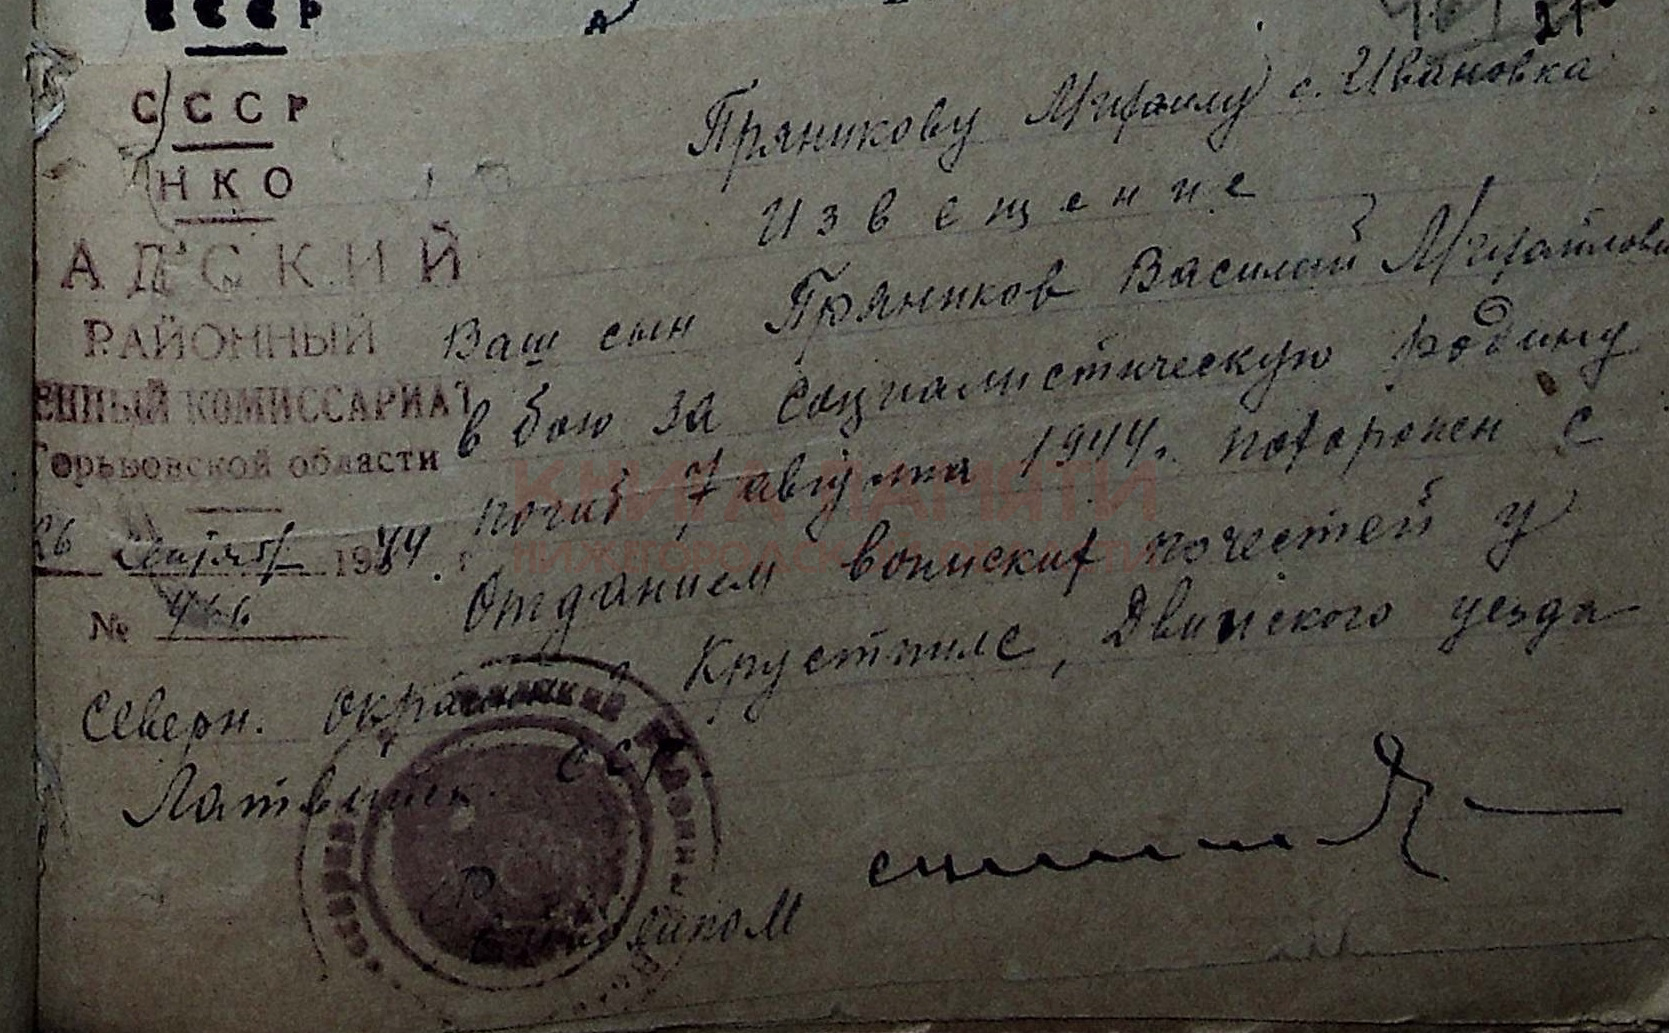 СССР
СССР
НКО
АДСКИЙ
РАЙОННЫЙ
ЕННЫЙ КОМИССАРИАТ
Горьковской области
26 сентября 1944 г
№ 466
Пряникову Михаилу с. Ивановка
Извещение
Ваш сын Пряников Василий Михайлови
в бою за социалистическую родину
погиб 7 августа 1944 г. похоронен с
отданием воинских почестей у
северн. окраины Крустпилс, Двинского уезда
Латвийск. ССР
КНИГА ПАМЯТИ
НИЖЕГОРОДСКОЙ ОБЛАСТИ